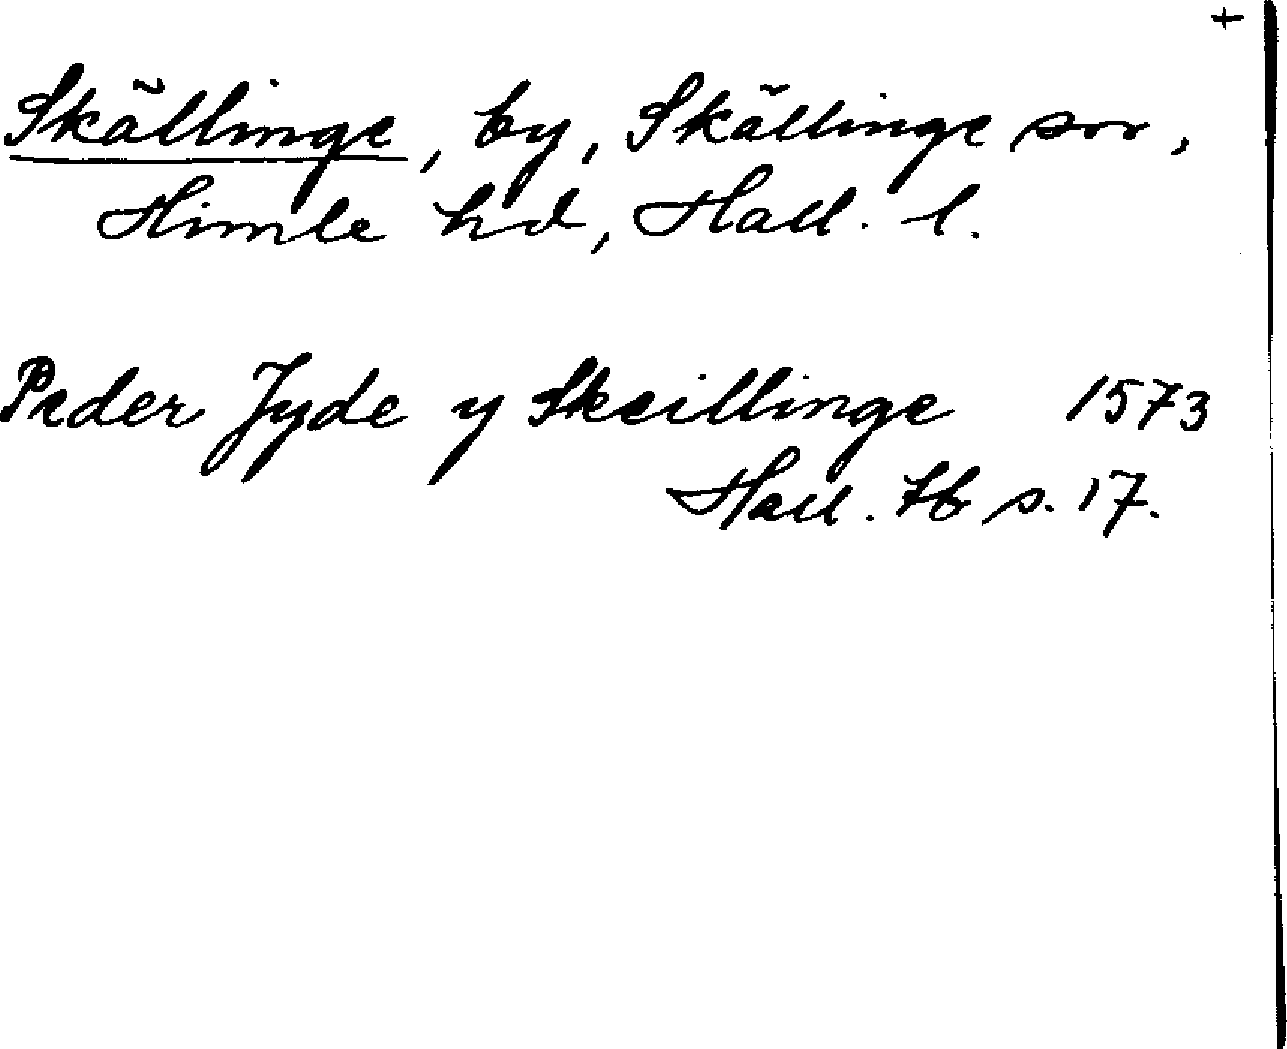 +
Skällinge, by, Skällinge sn,
Himle hd, Hall. l.
Peder Jyde y Skeillinge 1573
Hall. tb s. 17.